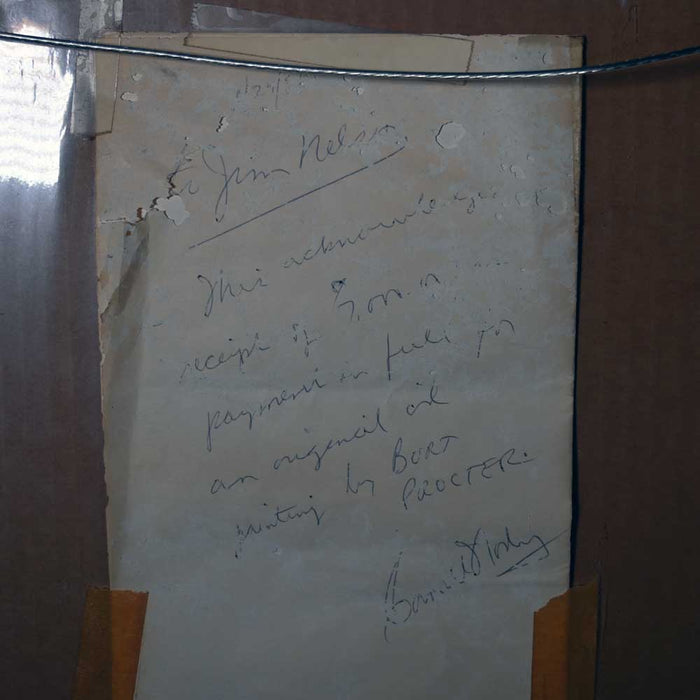 To Jim Nelson
This acknowledges
receipt of 7,000.
payment in full for
an original oil
painting by BURT
PROCTER.